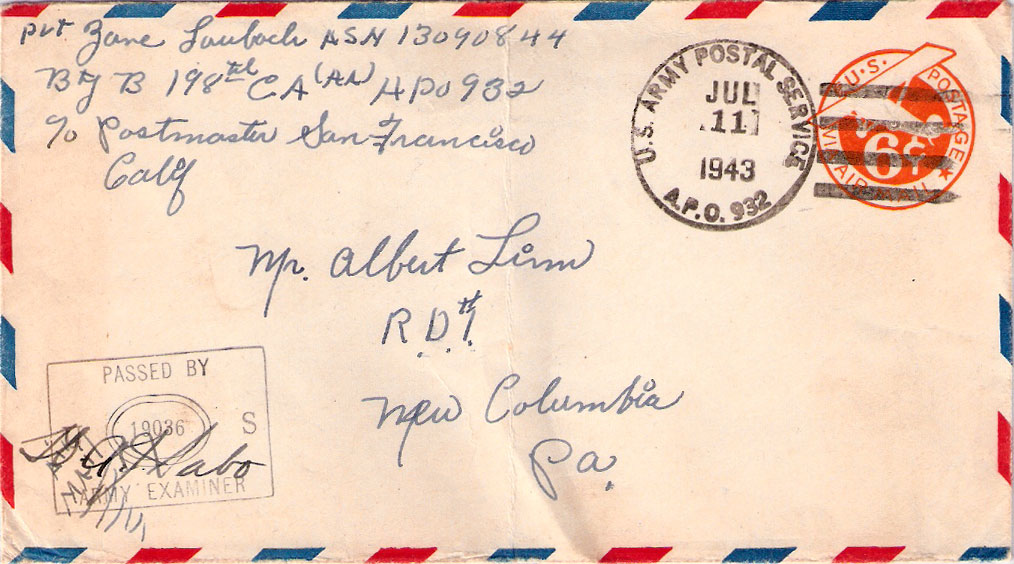 Pvt Zane Laubach ASN 13090844
Bty B 198th CA (AA) APO 932
c/o Postmaster San Francisco
Calif
U.S. ARMY POSTAL SERVICE
JUL
11
1943
A.P.O. 932
U.S. POSTAGE
VIA AIR MAIL
6¢
Mr. Albert Linn
R.D. #1.
New Columbia
Pa
PASSED BY
19036 S
Sabo
ARMY EXAMINER